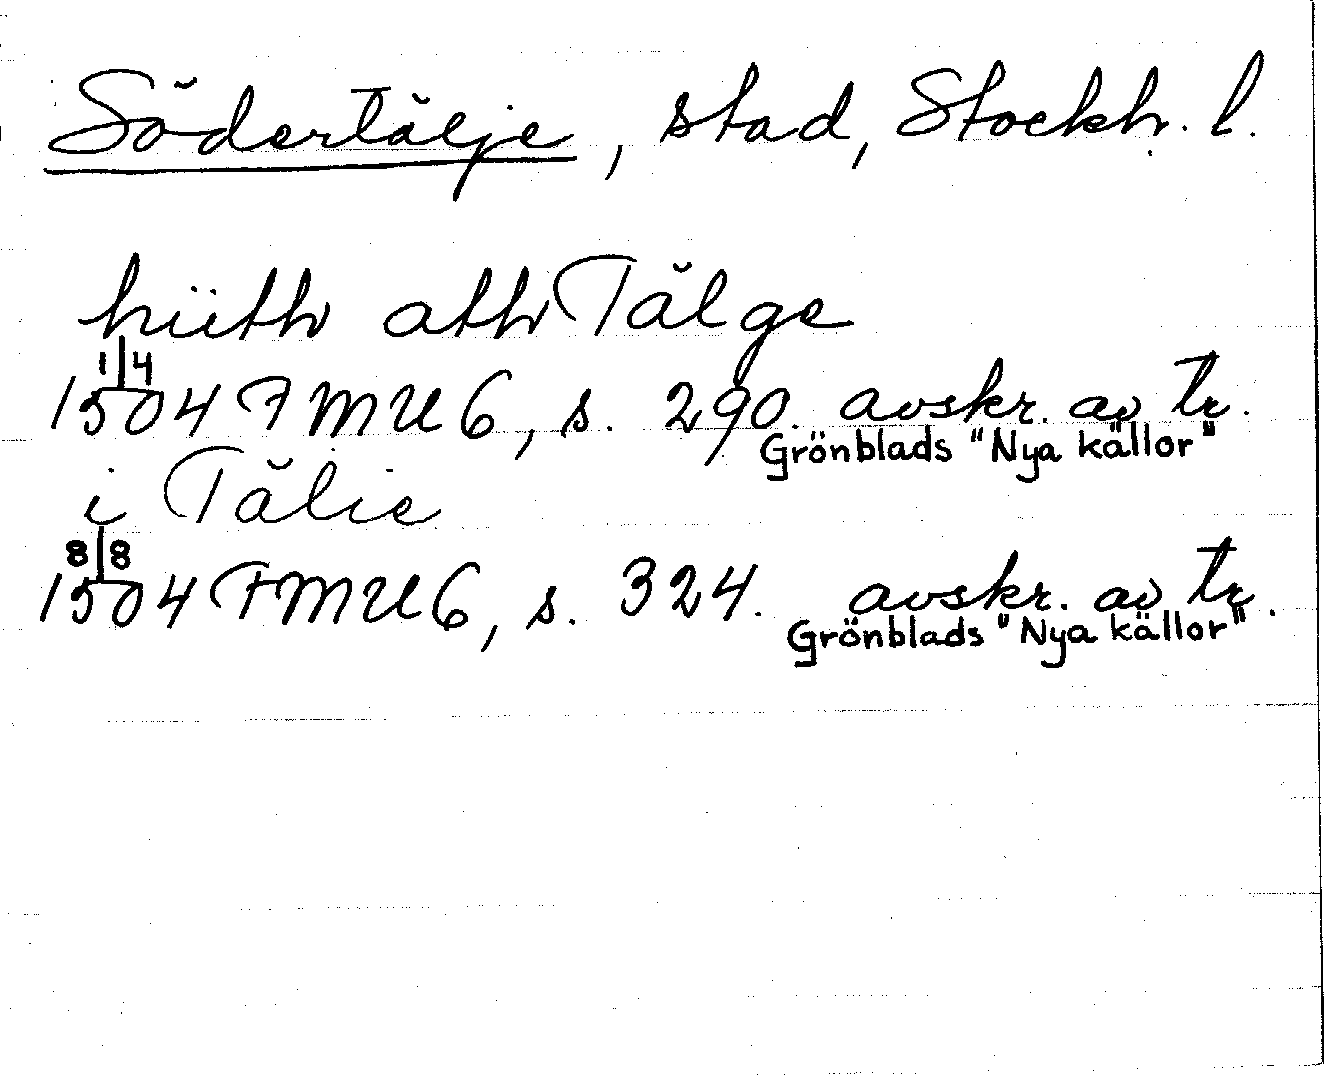 Södertälje, stad, Stockh. l.
hüth ath Tälge
1/4
1504 FMU 6, s. 290. avskr. av tr.
Grönblads "Nya källor"
i Tälie
8/8
1504 FMU 6, s. 324. avskr. av tr.
Grönblads "Nya källor"